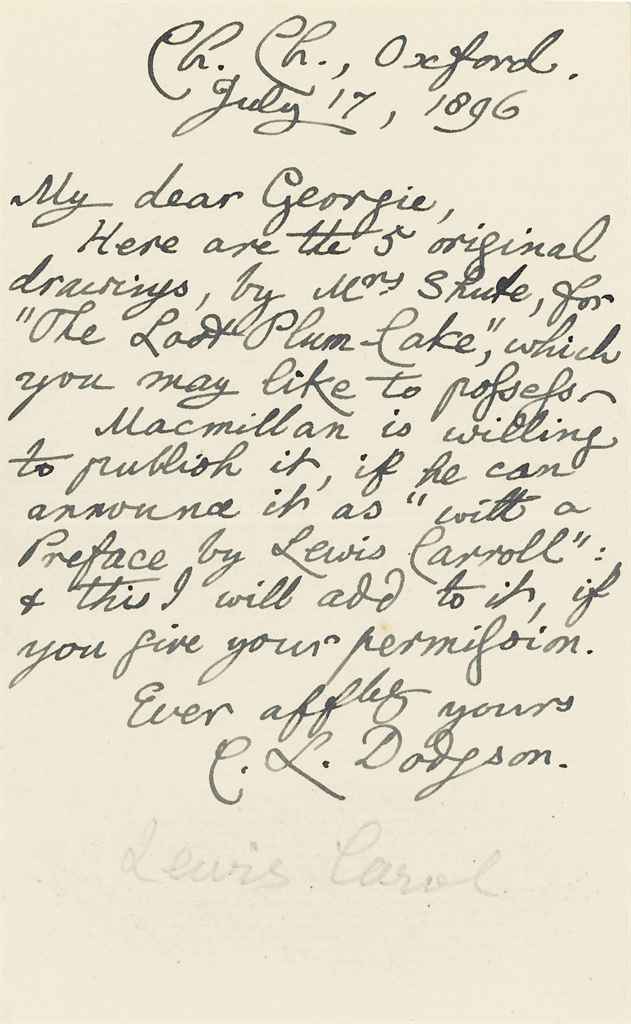 Ch. Ch., Oxford.
July 17, 1896
My dear Georgie,
Here are the 5 original
drawings, by Mrs Shute, for
"The Lost Plum-Cake", which
you may like to possess.
Macmillan is willing
to publish it, if he can
announce it as "with a
Preface by Lewis Carroll":
& this I will add to it, if
you give your permission.
Ever affbly yours
C. L. Dodgson.
Lewis Carol